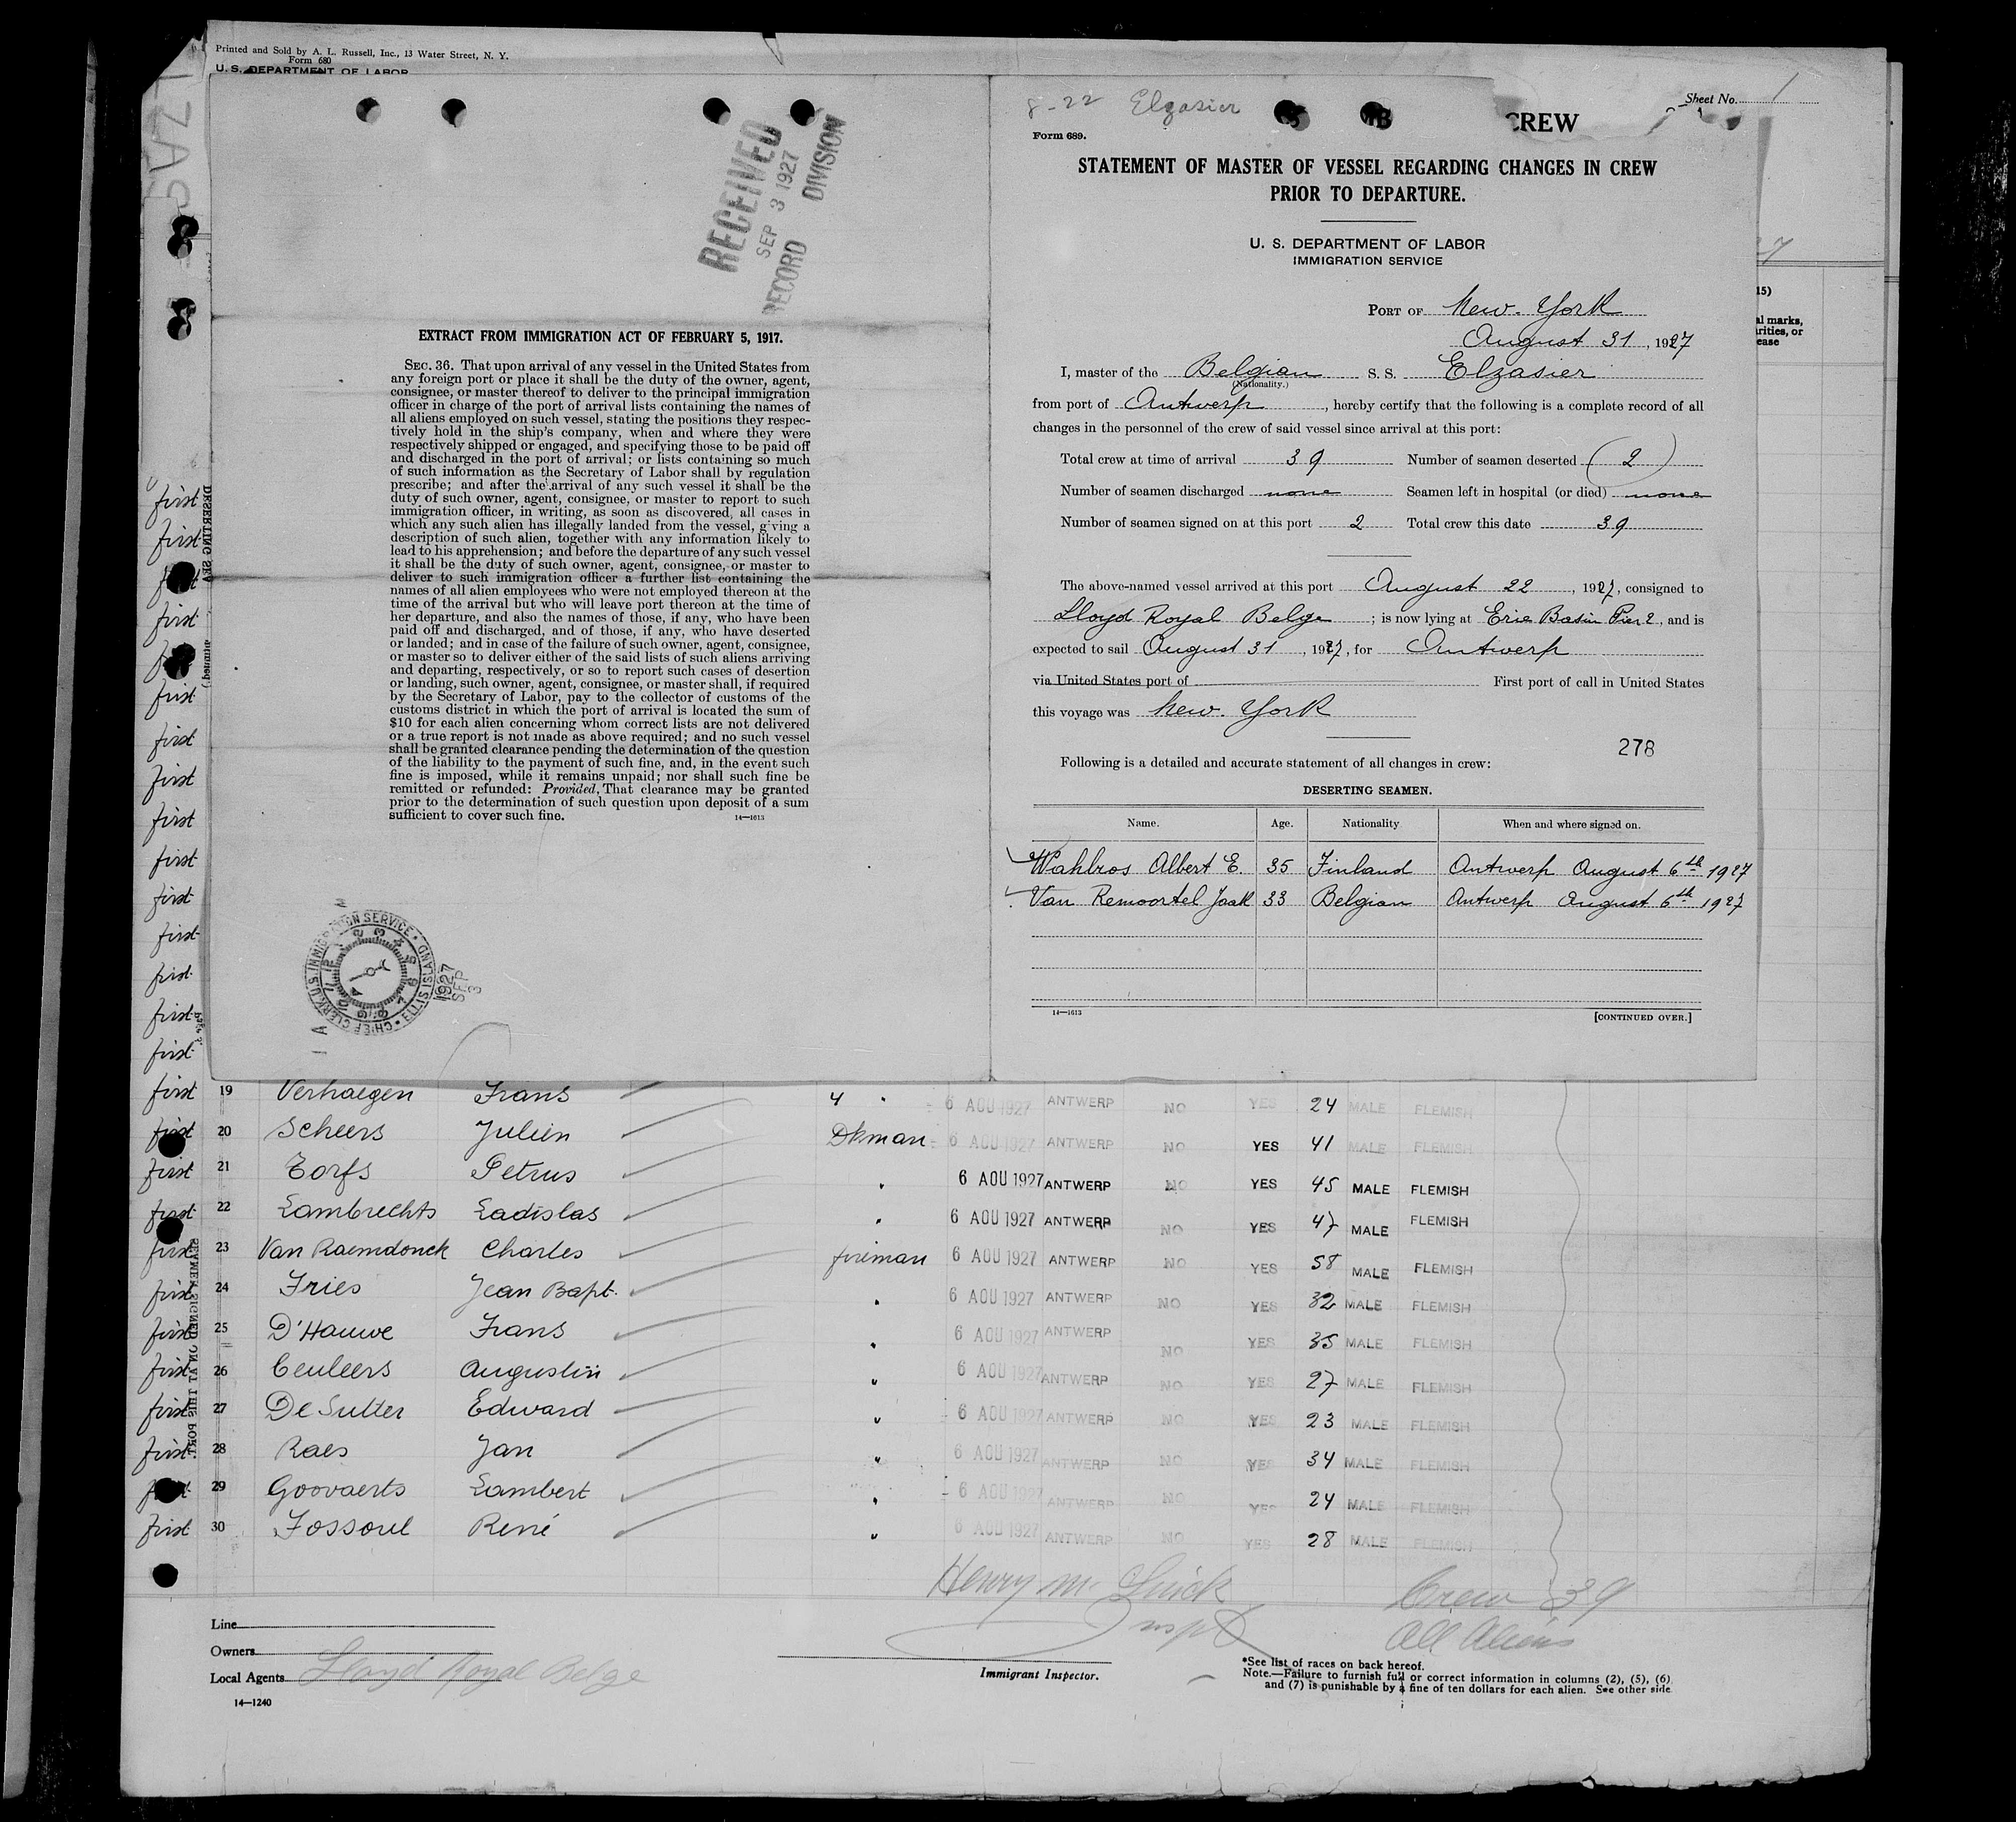 Printed and Sold by A. L. Russell, Inc., 13 Water Street, N. Y.
Form 680
U. S. DEPARTMENT OF LABOR
RECEIVED
SEP 3 1927
RECORD DIVISION
EXTRACT FROM IMMIGRATION ACT OF FEBRUARY 5, 1917.
SEC. 36. That upon arrival of any vessel in the United States from
any foreign port or place it shall be the duty of the owner, agent,
consignee, or master thereof to deliver to the principal immigration
officer in charge of the port of arrival lists containing the names of
all aliens employed on such vessel, stating the positions they respec-
tively hold in the ship's company, when and where they were
respectively shipped or engaged, and specifying those to be paid off
and discharged in the port of arrival; or lists containing so much
of such information as the Secretary of Labor shall by regulation
prescribe; and after the arrival of any such vessel it shall be the
duty of such owner, agent, consignee, or master to report to such
immigration officer, in writing, as soon as discovered, all cases in
which any such alien has illegally landed from the vessel, giving a
description of such alien, together with any information likely to
lead to his apprehension; and before the departure of any such vessel
it shall be the duty of such owner, agent, consignee, or master to
deliver to such immigration officer a further list containing the
names of all alien employees who were not employed thereon at the
time of the arrival but who will leave port thereon at the time of
her departure, and also the names of those, if any, who have been
paid off and discharged, and of those, if any, who have deserted
or landed; and in case of the failure of such owner, agent, consignee,
or master so to deliver either of the said lists of such aliens arriving
and departing, respectively, or so to report such cases of desertion
or landing, such owner, agent, consignee, or master shall, if required
by the Secretary of Labor, pay to the collector of customs of the
customs district in which the port of arrival is located the sum of
$10 for each alien concerning whom correct lists are not delivered
or a true report is not made as above required; and no such vessel
shall be granted clearance pending the determination of the question
of the liability to the payment of such fine, and, in the event such
fine is imposed, while it remains unpaid; nor shall such fine be
remitted or refunded: Provided, That clearance may be granted
prior to the determination of such question upon deposit of a sum
sufficient to cover such fine.
14—1613
CHIEF CLERK U.S. IMMIGRATION SERVICE · ELLIS ISLAND
1927 SEP 3
8-22 Elzasier
Sheet No. 1
CREW
Form 689.
STATEMENT OF MASTER OF VESSEL REGARDING CHANGES IN CREW
PRIOR TO DEPARTURE.
U. S. DEPARTMENT OF LABOR
IMMIGRATION SERVICE
PORT OF New. York
August 31, 1927
I, master of the Belgian S. S. Elzasier
(Nationality.)
from port of Antwerp, hereby certify that the following is a complete record of all
changes in the personnel of the crew of said vessel since arrival at this port:
Total crew at time of arrival 39 Number of seamen deserted (2)
Number of seamen discharged none Seamen left in hospital (or died) none
Number of seamen signed on at this port 2 Total crew this date 39
The above-named vessel arrived at this port August 22, 1927, consigned to
Lloyd Royal Belge; is now lying at Erie Basin Pier 2, and is
expected to sail August 31, 1927, for Antwerp
via United States port of First port of call in United States
this voyage was New. York
278
Following is a detailed and accurate statement of all changes in crew:
DESERTING SEAMEN.
Name. Age. Nationality When and where signed on.
Wahlros Albert E. 35 Finland Antwerp August 6th 1927
Van Remoortel Jaak 33 Belgian Antwerp August 6th 1927
14—1613 [CONTINUED OVER.]
first
first
first
first
first
first
first
first
first
first
first
first
first
first
first 19 Verhaegen Frans 4 " 6 AOU 1927 ANTWERP NO YES 24 MALE FLEMISH
first 20 Scheers Julien Dkman 6 AOU 1927 ANTWERP NO YES 41 MALE FLEMISH
first 21 Torfs Petrus " 6 AOU 1927 ANTWERP NO YES 45 MALE FLEMISH
first 22 Lambrechts Ladislas " 6 AOU 1927 ANTWERP NO YES 47 MALE FLEMISH
first 23 Van Raemdonck Charles fireman 6 AOU 1927 ANTWERP NO YES 58 MALE FLEMISH
first 24 Fries Jean Bapt. " 6 AOU 1927 ANTWERP NO YES 32 MALE FLEMISH
first 25 D'Hauwe Frans " 6 AOU 1927 ANTWERP NO YES 35 MALE FLEMISH
first 26 Ceuleers Augustin " 6 AOU 1927 ANTWERP NO YES 27 MALE FLEMISH
first 27 De Sutter Edward " 6 AOU 1927 ANTWERP NO YES 23 MALE FLEMISH
first 28 Raes Jan " 6 AOU 1927 ANTWERP NO YES 34 MALE FLEMISH
first 29 Goovaerts Lambert " 6 AOU 1927 ANTWERP NO YES 24 MALE FLEMISH
first 30 Fossoul René " 6 AOU 1927 ANTWERP NO YES 28 MALE FLEMISH
Henry M. Crew 39
Inspt All Aliens
Line
Owners
Local Agents Lloyd Royal Belge
Immigrant Inspector.
*See list of races on back hereof.
Note.—Failure to furnish full or correct information in columns (2), (5), (6)
and (7) is punishable by a fine of ten dollars for each alien. See other side
14—1240